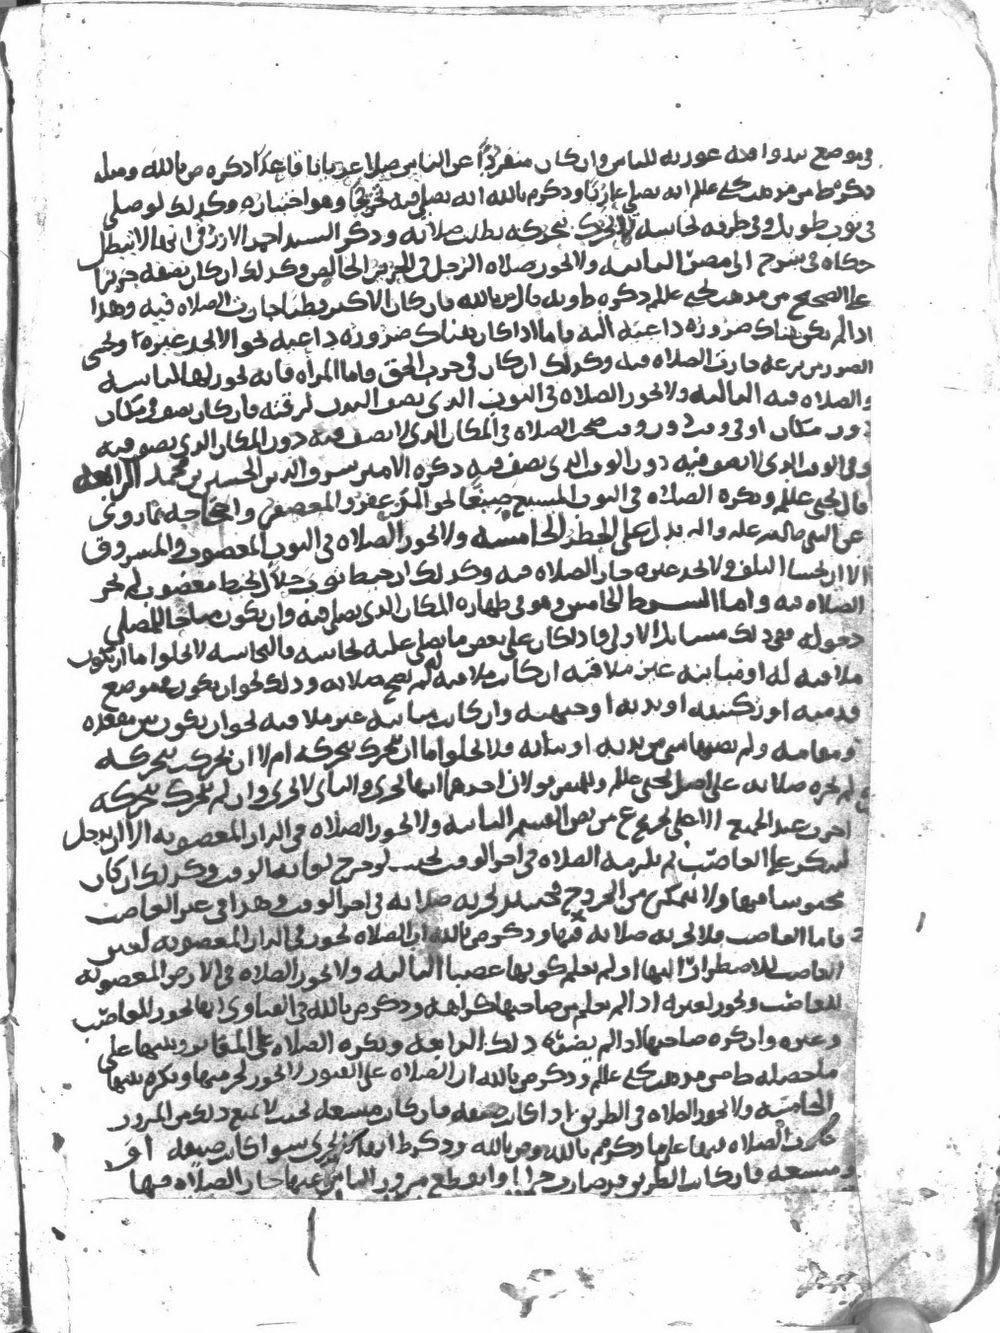 في موضع تبدوا فيه عورته للناس وان كان منفردًا عن الناس صلا عريانا قاعدًا ذكره ص بالله ومثله
ذكر ط من مذهب يحيى علم انه يصلي عاريًا وذكر م بالله انه يصلي فيه تخريجًا وهو اختياره وكذلك لو صلى
في ثوب طويل وفي طرفه نجاسة تتحرك بتحركه بطلت صلاته وذكر السيد احمد الازرقي انها لا تبطل
حكاه في شرح ابي مضر الثانيه ولا تجوز صلاة الرجل في الحرير الخالص وكذلك ان كان نصفه حريرا
على الصحيح من مذهب يحيى علم ذكره ط وبه قال ص بالله فان كان الاكثر قطنا جازت الصلاه فيه وهذا
اذا لم يكن هناك ضرورة داعية اليه فاما اذا كان هناك ضرورة داعية نحو الا يجد غيره او يخشى
الضرر من نزعه جازت الصلاه فيه وكذلك ان كان في حرب المحق فاما المرأه فانه يجوز لها لباسه
والصلاه فيه الثالثه ولا تجوز الصلاة في الثوب الذي يصف البدن لرقته فان كان يصف في مكان
دون مكان او في وقت دون وقت صحت الصلاة في المكان الذي لا يصف فيه دون المكان الذي يصف فيه
وفي الوقت الذي لا يصف فيه دون الوقت الذي يصف فيه ذكره الامير شرف الدين الحسين بن محمد الرابعه
قال يحيى علم وتكره الصلاه في الثوب المشبع صبغًا نحو المزعفر والمعصفر واحتجاجه بما روي
عن النبي صلى الله عليه واله يدل على الحظر الخامسه ولا تجوز الصلاه في الثوب المغصوب والمسروق
الا ان يخشا التلف ولا يجد غيره جاز الصلاه فيه وكذلك ان خيط ثوب حلال بخيط مغصوب لم تجز
الصلاه فيه واما الشرط الخامس وهو في طهارة المكان الذي يصلى فيه وان يكون مباحًا للمصلي
دخوله ففي ذلك مسايل الاولى اذا كان على بعض ما يصلي عليه نجاسه فالنجاسه لا تخلوا اما ان تكون
ملاقيه له او مباينه غير ملاقيه ان كانت ملاقيه لم تصح صلاته وذلك نحو ان يكون موضع
قدميه او ركبتيه او يديه او جبهته وان كانت مباينه غير ملاقيه نحو ان يكون بين مقعده
ومقامه ولم يصبها شي من بدنه او ثيابه فلا تخلوا اما ان تتحرك بتحركه ام لا ان تحركت بتحركه
لم تجزه صلاته على اصل يحيى علم وللمص قولان احدهما انها تجزي والثاني لا تجزي وان لم تتحرك بتحركه
اجزت عند الجميع الا على تخريج ع من نص القسم الثانيه ولا تجوز الصلاه في الدار المغصوبه الا ان يدخل
لينكر على الغاصب لم تلزمه الصلاه في اخر الوقت بحيث لو خرج لفاته الوقت وكذلك ان كان
محبوسا فيها ولا يتمكن من الخروج فحينئذ تجزيه صلاته في اخر الوقت وهذا في غير الغاصب
فاما الغاصب فلا تجزيه صلاته فيها وذكر ص بالله ان الصلاه تجوز في الدار المغصوبه لغير
الغاصب للاضطرار اليها او لم يعلم كونها غصبا الثالثه ولا تجوز الصلاه في الارض المغصوبه
للغاصب وتجوز لغيره اذا لم يعلم من صاحبها كراهه وذكر ص بالله في الفتاوى انها تجوز للغاصب
وغيره وان كره صاحبها اذا لم يضره ذلك الرابعه وتكره الصلاة على المقابر وبينها على
ما حصله ط من مذهب يحيى علم وذكر ص بالله ان الصلاه على القبور لا تجوز لحرمتها وتكره بينها
الخامسه ولا تجوز الصلاه في الطريق اذا كانت ضيقه فان كانت متسعه بحيث لا تمنع ذلك من المرور
جازت الصلاه فيها على ما ذكره م بالله وص بالله وذكر ط انها لا تجزي سوا كانت ضيقه او
متسعه فان كانت الطريق قد صارت خرابا وانقطع مرور الناس عنها جاز الصلاه فيها